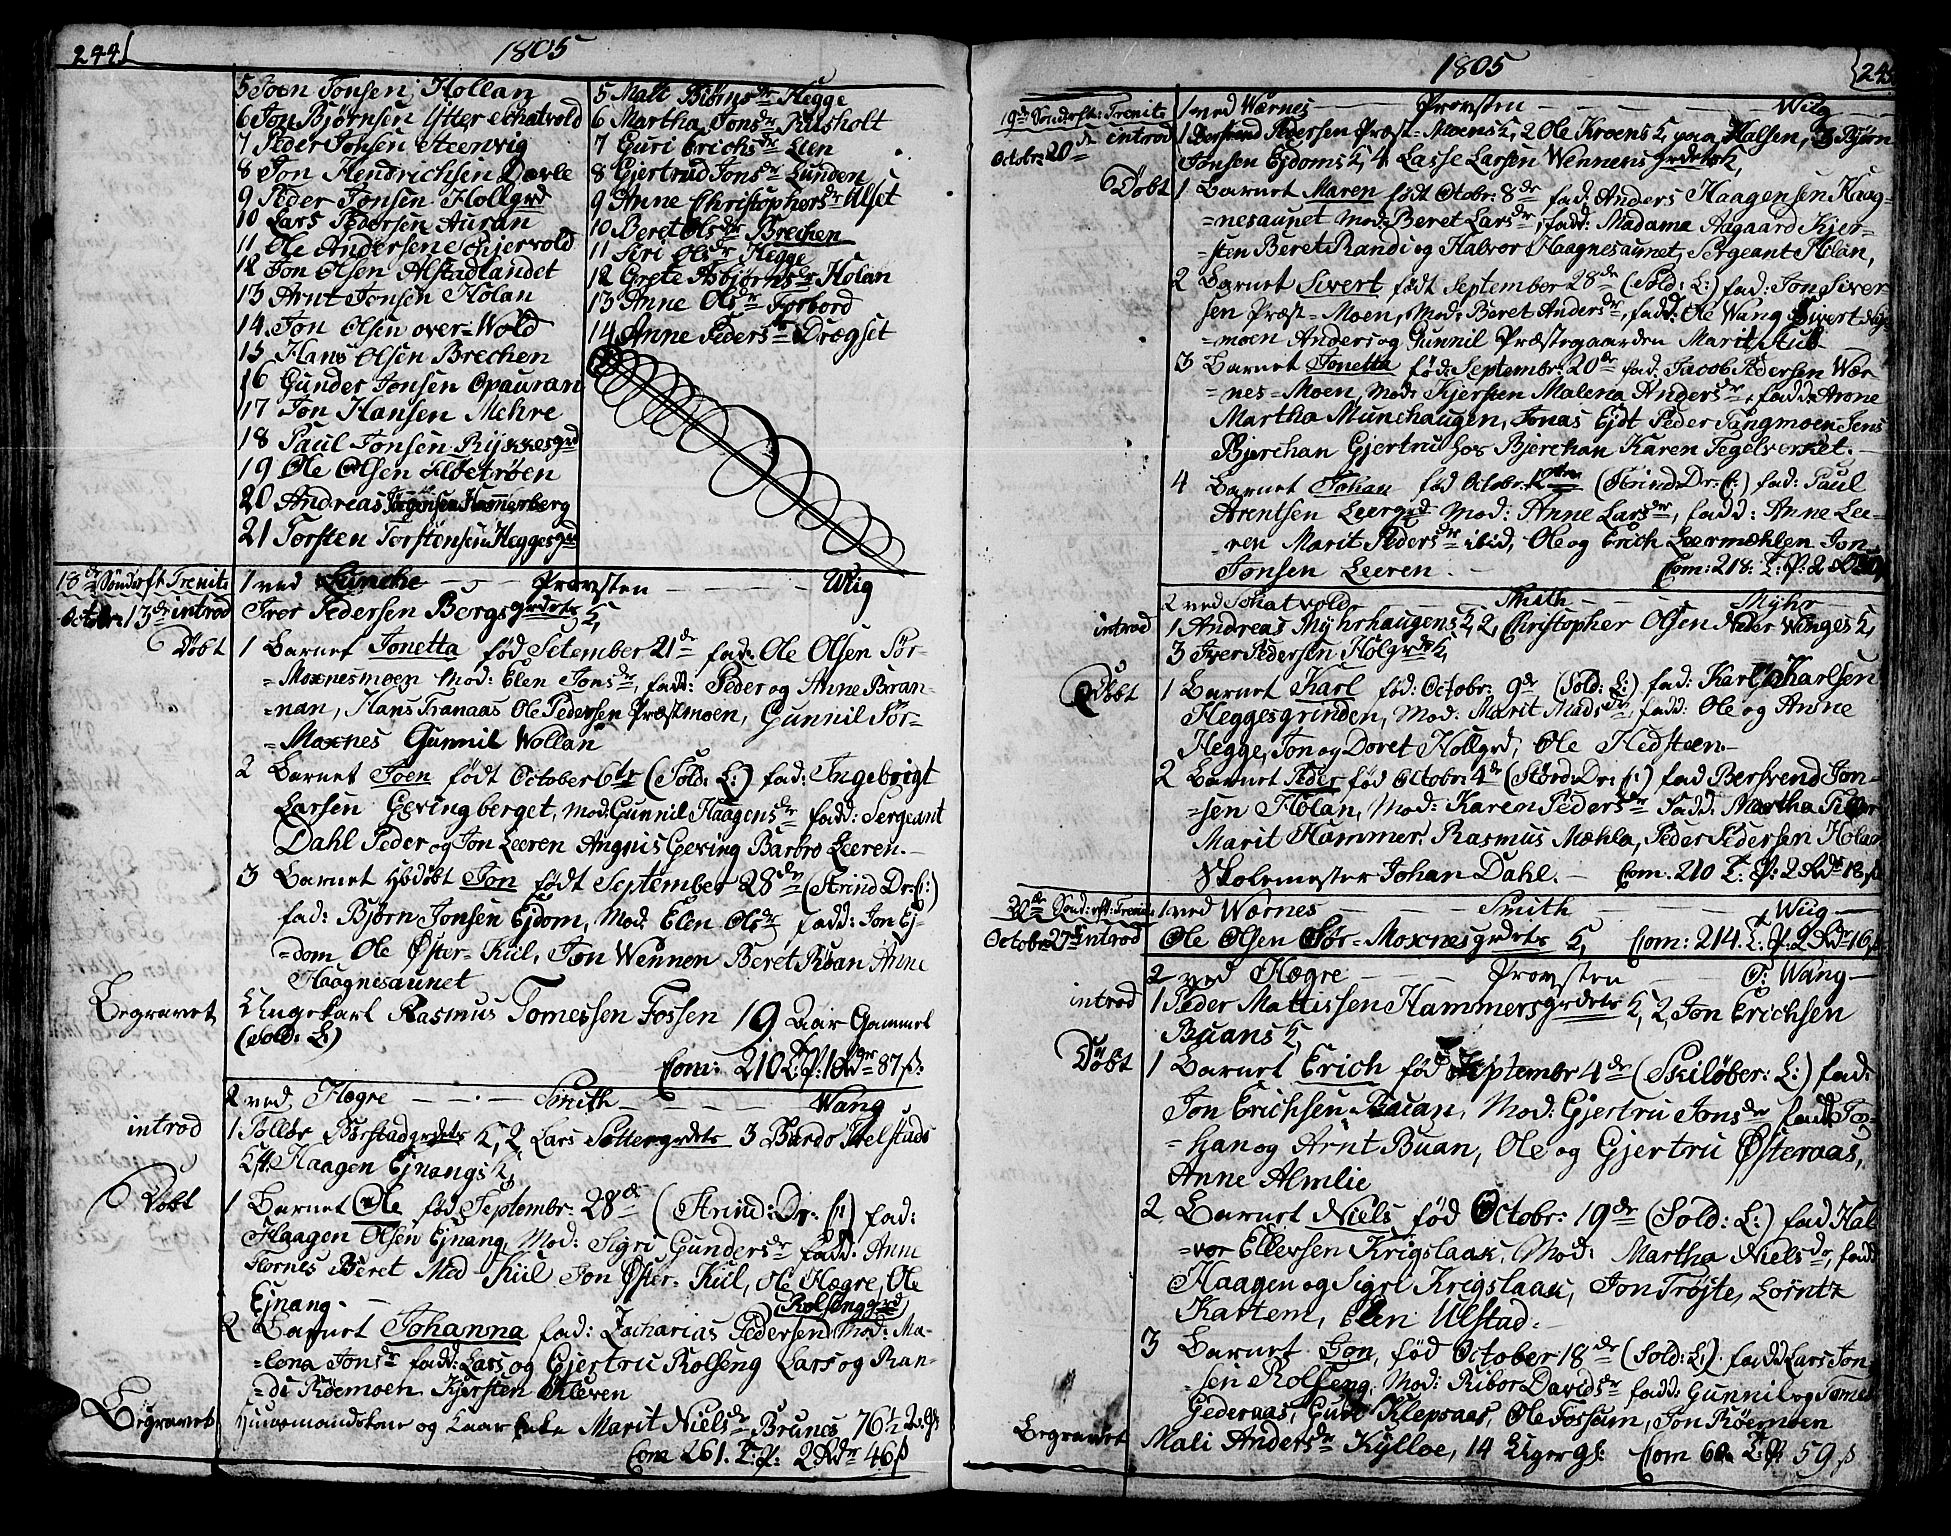 244
1805
5 Joen Jonsen Hollan
6 Jon Bjørnsen Ytter Schatvold
7 Peder Jonsen Steenvig
8 Jon Hendrichsen Dærle
9 Peder Jonsen Hollgrd
10 Lars Pedersen Auran
11 Ole Andersen Schjervold
12 Jon Olsen Alstadlandet
13 Arnt Jonsen Holan
14 Jon Olsen over-Wold
15 Hans Olsen Brechen
16 Gunder Jonsen Opauran
17 Jon Hansen Mehre
18 Paul Jonsen Rykkesgrd
19 Ole Olsen Kløetrøen
20 Andreas Jørgensen Hammerberg
21 Torsten Torstensen Heggesgrd
5 Malt Biørns dr Hegge
6 Martha Jons dr Kusholt
7 Guri Erichs dr Lien
8 Gjertrud Jons dr Lunden
9 Anne Christophers dr Ulset
10 Beret Ols dr Brechen
11 Siri Ols dr Hegge
12 Grete Asbjørns dr Holan
13 Anne Ols dr Forbord
14 Anne Peders dr Drægset
18de Sönd: eft Trenits 1 ved Luncke - - - Provsten - - - Wiig
Octobr: 13de introd Iver Pedersen Bergs grdets K,
Döbt 1 Barnet Jonetta fød Setember 21 de fad: Ole Olsen Sør-
=Moxnesmoen Mod: Elen Jons dr, fadd: Peder og Anne Bran-
=nan, Hans Tranaas Ole Pedersen Præstmoen, Gunnil Sør-
=Moxnes Gunnil Wollan
2 Barnet Joen født October 6te (Sold: L:) fad: Ingebrigt
Larsen Gevingberget, Mod: Gunnil Haagens dr fadd: Sergeant
Dahl Peder og Jon Leeren Angnis Geving Barbro Leeren. -
3 Barnet Hjdøbt Jon født September 28 de (Strind Dr: C:)
fad: Bjørn Jonsen Ejdom, Mod: Elen Ols dr, fadd: Jon Ej-
=dom Ole Öster-Kiil, Jon Wennen Beret Røan Anne
Haagnesaunet
Begravet Ungekarl Rasmus Tomessen Fossen 19 Aar Gammel
(Sold: L:)
Com: 210 T: P: 1 Rdr 87 ß.
2 ved Hegre - - - Smith - - - Wang
introd 1 Tollør Børstadgrdets K, 2, Lars Sottergrdets 3 Bardo Trelstads
K, 4, Haagen Ejnangs K,
Döbt 1 Barnet Ole fød Septembr: 28 de (Strind: Dr: C:) fad:
Haagen Olsen Ejnang, Mod: Sigri Gunders dr fadd: Anne
Flornes Beret Med-Kiil Jon Öster-Kiil, Ole Hægre, Ole
Ejnang. -
2 Barnet Johanna fad: Zacharias Pedersen Rolsenggrd Mod: Ma-
=lena Jons dr fadd: Lars og Gjertru Rolseng Lars og Ran-
=di Røemoen Kjersten Kleven
Begravet Huusmandskone og Marit Niels dr Bruncs 76½
Com 261. T: P: 2 Rdr 46 ß
1805
245
19de Sönd: eft: Trenits 1 ved Wærnes - - - Provsten - - - Wiig
Octobr: 20 de introd 1 Bersvend Pedersen Præst-Moens K, 2 Ole Kroens K paa Halsen, 3 Bjørn
Jonsen Ejdoms K, 4 Lasse Larsen Wennens grdets K,
Döbt 1 Barnet Maren født Octobr: 8 de fad: Anders Haagensen Haag-
=nesaunet Mod: Beret Lars dr, fadd: Madama Aagaard Kjer-
=sten Beret Randi og Halvor Haagnesaunet, Sergeant Holan,
2 Barnet Sivert født September 28 de (Sold: L:) fad: Jon Siver
sen Præst-Moen, Mod: Beret Anders dr, fadd: Ole Wang Sivert
=moen Anders og Gunnil Præstegaarden Marit Hub
3 Barnet Jonetta fød: Septembr: 20 de fad: Jacob Pedersen Wær
=nes-Moen, Mod: Kjersten Malena Anders dr, fadd: Anne
Martha Munchaugen, Jonas Ejdt Peder Tangmoen Jens
Bjerchan Gjertru hos Bjerchan Karen Tegelverket. -
4 Barnet Johan fød Octobr: (Strind: Dr: C:) fad: Paul
Arentsen Leergrd Mod: Anne Lars dr, fadd: Anne Lee-
=ren Marit Peders dr ibid, Ole og Erich Leermæhlen Jon
Jonsen Leeren. - Com: 218: T: P: 2
2 ved Schatvold - - - Smith - - - Myhr
introd 1 Andreas Myhrhaugens K, 2, Christopher Olsen Neder Winges K,
3 Iver Pedersen Holgrds K,
Döbt 1 Barnet Karl fød: Octobr: 9 de (Sold: L:) fad: Karl Karlsen
Heggesgrinden, Mod: Marit Mads dr, fadd: Ole og Anne
Hegge, Jon og Doret Hollgrd, Ole Hedsteen. -
2 Barnet Peder fød Octobr: 4 de (Størd: Dr: C:) fad Bersvend Jon-
=sen Holan, Mod: Karen Peders dr Fadd: Martha
Marit Hammer, Rasmus Mæhla, Peder Pedersen Holan
Skolemester Johan Dahl. - Com: 210 T: P: 2 Rdr 18 ß
20de Sönd: eft: Trenits 1 ved Wærnes - - - Smith - - - Wiig -
Octobr: 27 de introd Ole Olsen Sør-Moxnes grdets K, Com: 214. T: P: 2 Rdr 16 ß
2 ved Hægre - - - Provsten - - - T: Wang -
introd 1 Peder Mattissen Hammers grdets K, 2, Jon Erichsen
Buans K,
Döbt 1 Barnet Erich fød Septembr 4 de (Skiløber: L:) fad:
Jon Erichsen Buan, Mod: Gjertru Jons dr fadd: Jo-
=han og Arnt Buan, Ole og Gjertru Østeraas,
Anne Almlie
2 Barnet Niels fød Octobr: 19 de (Sold: L:) fad Hal
=vor Ellevsen Krigslaak, Mod: Martha Niels dr, fadd
Haagen og Sigri Krigslaau, Jon Trøjte, Lorntz
Kattem, Elen Ulstad. -
3 Barnet Jon, fød October 18 de (Sold: L:) fad: Lars Jon-
=sen Rolseng, Mod: Ribor Davids dr fadd: Gunnil og Tomes
Gederaas, Guri Klepsaas, Ole Fossum, Jon Røemoen
Begravet Mali Anders dr Kylloe, 14 Uger gl: Com 60 T: P: 59 ß